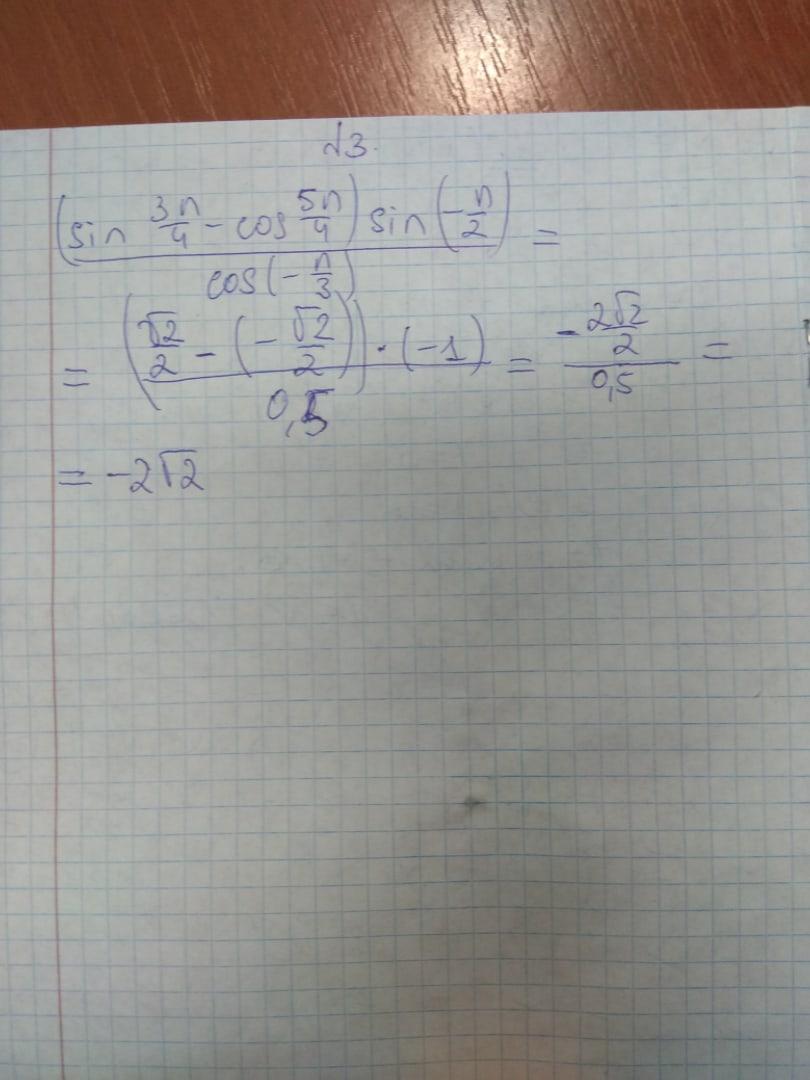 √3.
(sin 3π/4 - cos 5π/4) sin(-π/2) / cos(-π/3) =
= (√2/2 - (-√2/2)) · (-1) / 0,5 = - 2√2/2 / 0,5 =
= -2√2